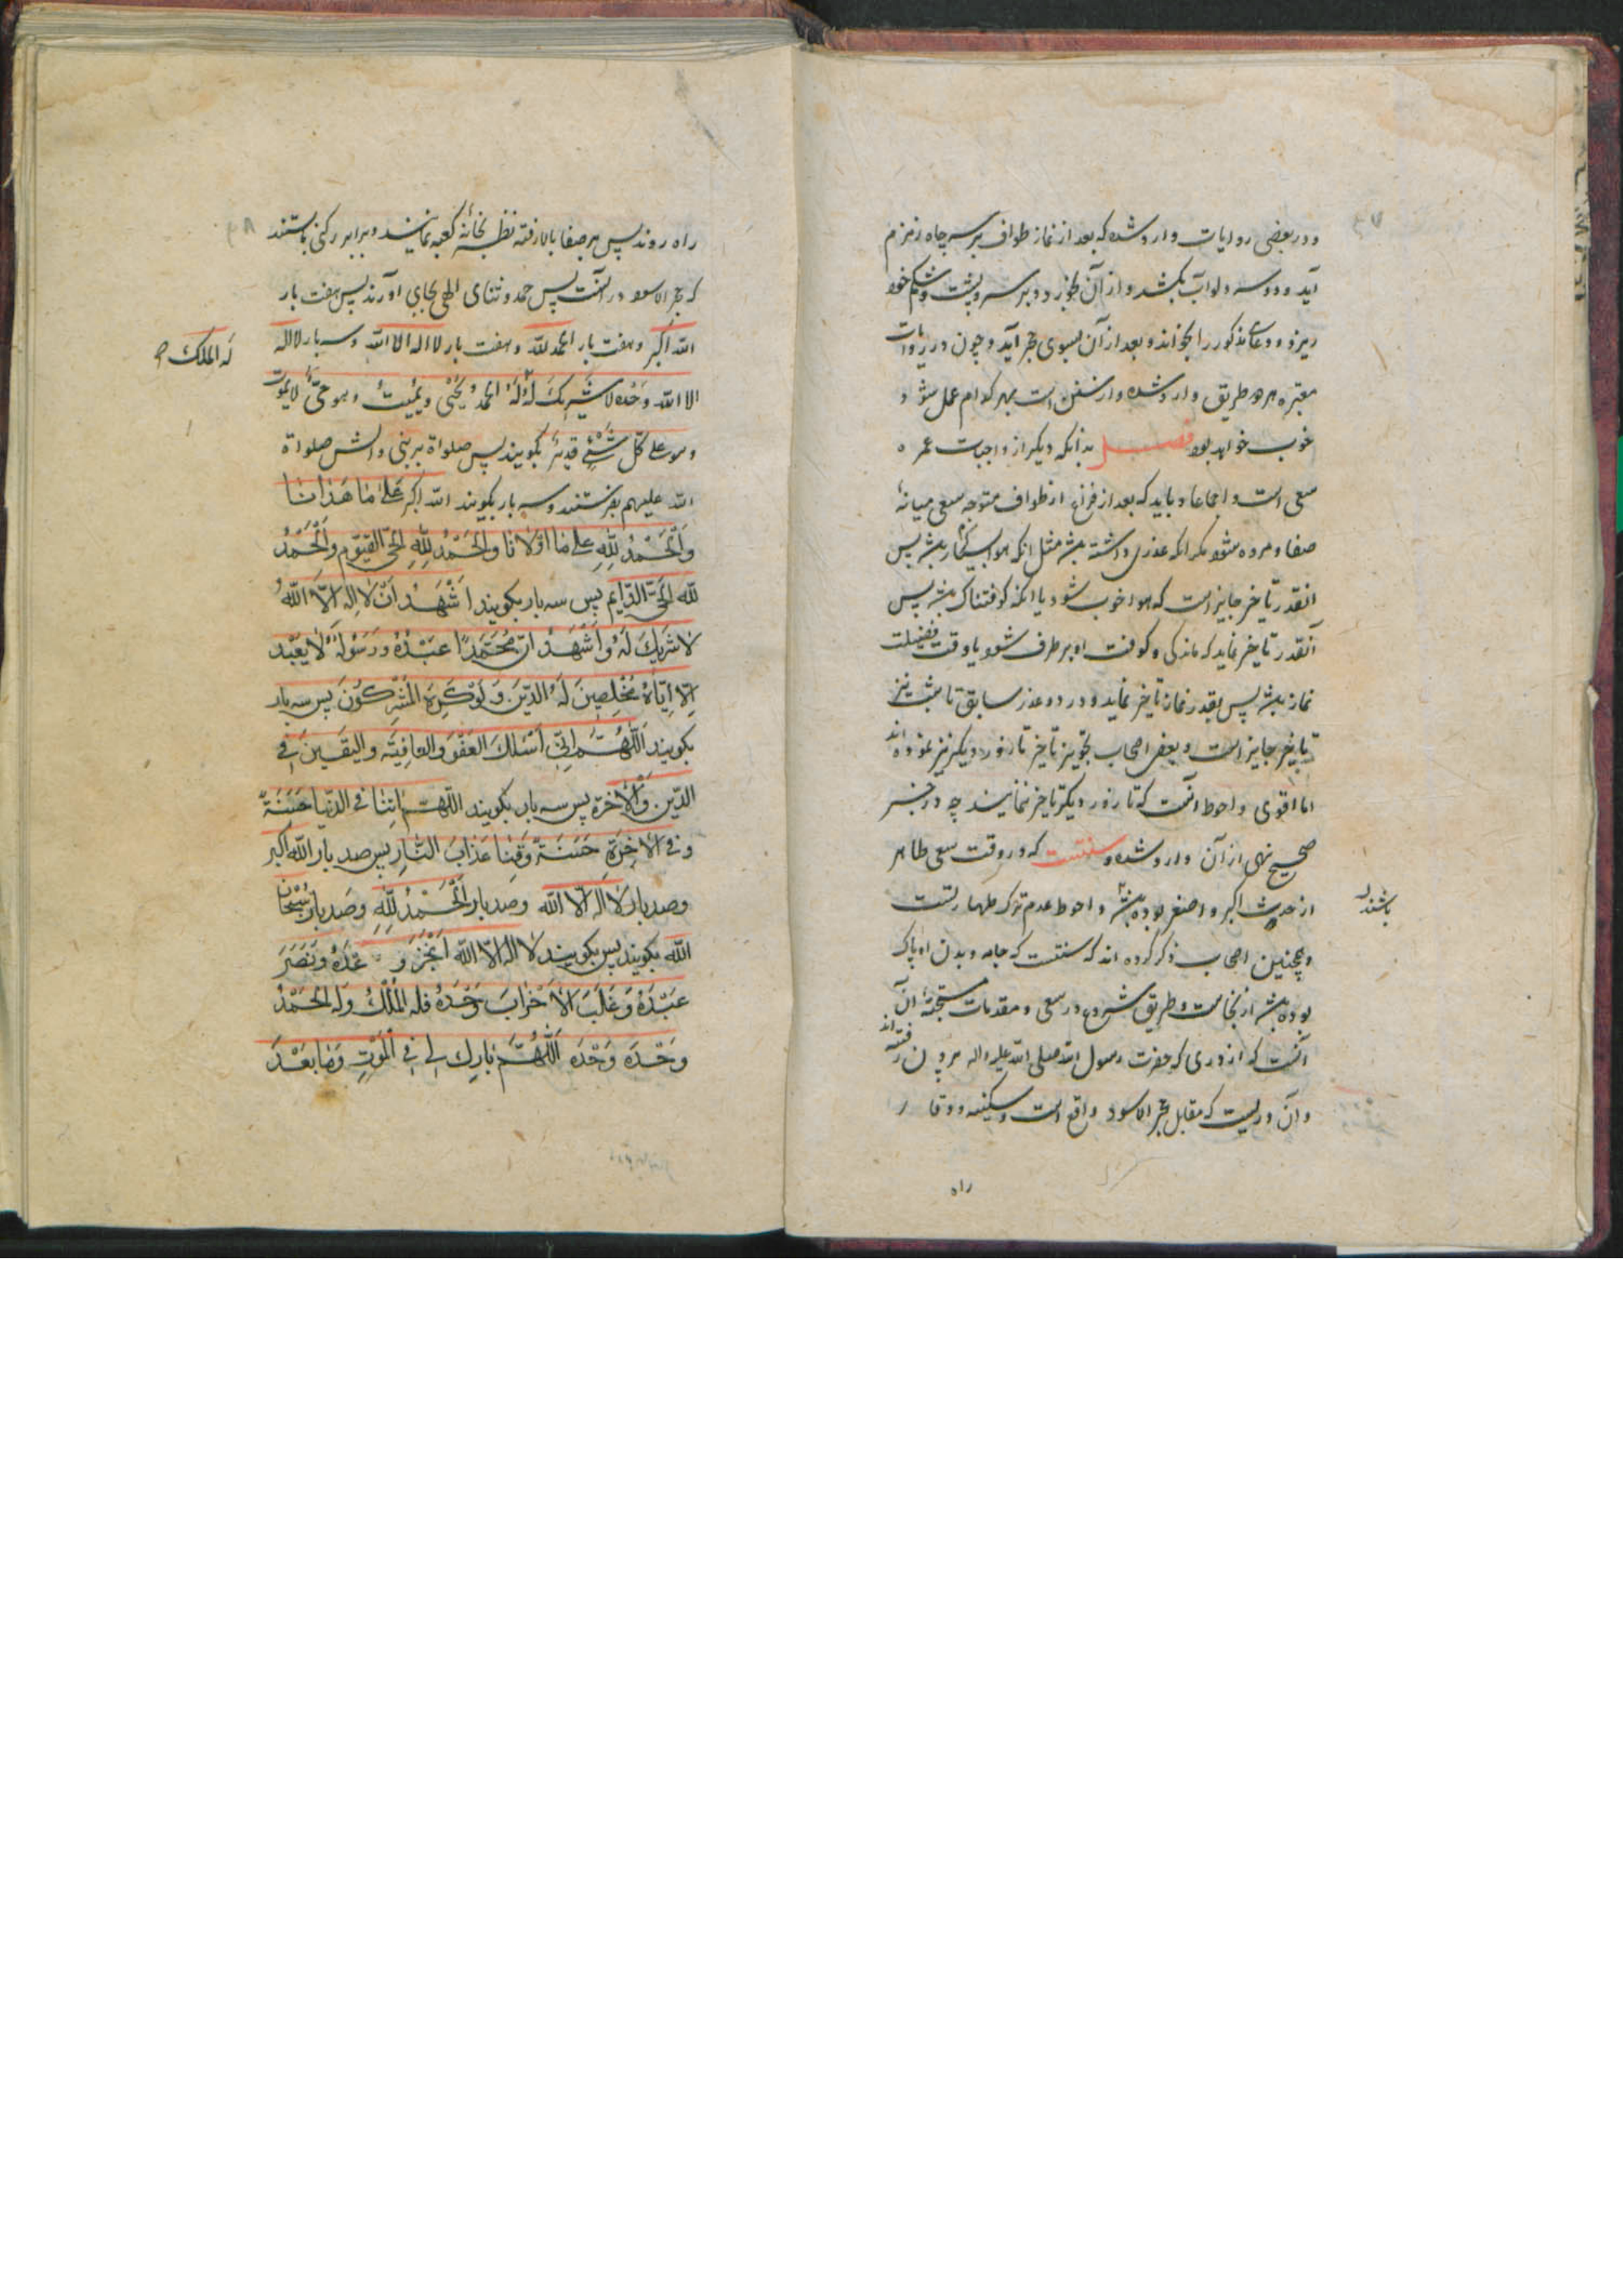 ودر بعضی روایات وارد شده که بعد از نماز طواف بر سر چاه زمزم
آید و دوسه دلو آب بکشد و از آن بخورد و بر سر و پشت و شکم خود
ریزد و دعای مذکور را بخواند و بعد از آن بسوی حجر آید و چون در روایات
معتبره هر دو طریق وارد شده و ارد بهر کدام عمل شود
خوب خواهد بود فصل بدانکه دیگر از واجبات عمره
سعی است و اجماعا و باید که بعد از فراغ از طواف متوجه سعی میانه
صفا و مروه شود مگر انکه عذری داشته باشد مثل انکه هوا بسیار باشد پس
انقدر تاخیر جایز است که هوا خوب شود یا انکه کوفتناک باشد پس
آنقدر تاخیر نماید که ماندکی و کوفت او بر طرف شود یا وقت فضیلت
نماز باشد پس بقدر نماز تاخیر نماید و در دو عذر سابق تا شب نیز
تاخیر جایز است و بعضی اصحاب تجویز تاخیر تا روز دیگر نیز نموده اند
اما اقوی و احوط آنست که تا روز دیگر تاخیر ننمایند چه در خبر
صحیح نهی از آن وارد شده و سنتست که در وقت سعی طاهر
از حدث اکبر و اصغر بوده باشد و احوط عدم ترک طهارتست
باشند
وهمچنین اصحاب ذکر کرده اند که سنتست که جامه و بدن او پاک
بوده باشد از نجاست و طریق شروع در سعی و مقدمات مستحبه آن
آنست که از دری که حضرت رسول الله صلی الله علیه واله بیرون رفته اند
و آن دریست که مقابل حجر الاسود واقع است وسکینه و وقار
راه
راه روند پس بر صفا بالا رفته نظر بخانه کعبه نمایند و برابر رکنی بایستند
که حجر الاسود در آنست پس حمد و ثنای الهی بجای آورند پس هفت بار
الله اکبر و هفت بار الحمد لله و هفت بار لا اله الا الله و سه بار لا اله
له الملک
الا الله وحده لا شریک له له الحمد یحیی ویمیت وهو حی لا یموت
وهو علی کل شیء قدیر بکویند پس صلواة بر نبی و الش صلواة
الله علیهم بفرستند و سه بار بکویند الله اکبر علی ما هدانا
والحمد لله علی ما اولانا والحمد لله الحی القیوم والحمد
لله الحی الدایم پس سه بار بکویند اشهد ان لا اله الا الله
لا شریک له واشهد ان محمدا عبده ورسوله لا یعبد
الا ایاه مخلصین له الدین ولو کره المشرکون پس سه بار
بکویند اللهم انی اسئلک العفو والعافیة والیقین فی
الدین والاخرة پس سه بار بکویند اللهم اتنا فی الدنیا حسنة
وفی الاخرة حسنة وقنا عذاب النار پس صد بار الله اکبر
وصد بار لا اله الا الله وصد بار الحمد لله وصد بار سبحان
الله بکویند پس بکویند لا اله الا الله انجز وعده ونصر
عبده وغلب الاحزاب وحده فله الملک وله الحمد
وحده وحده اللهم بارک لی فی الموت وما بعد